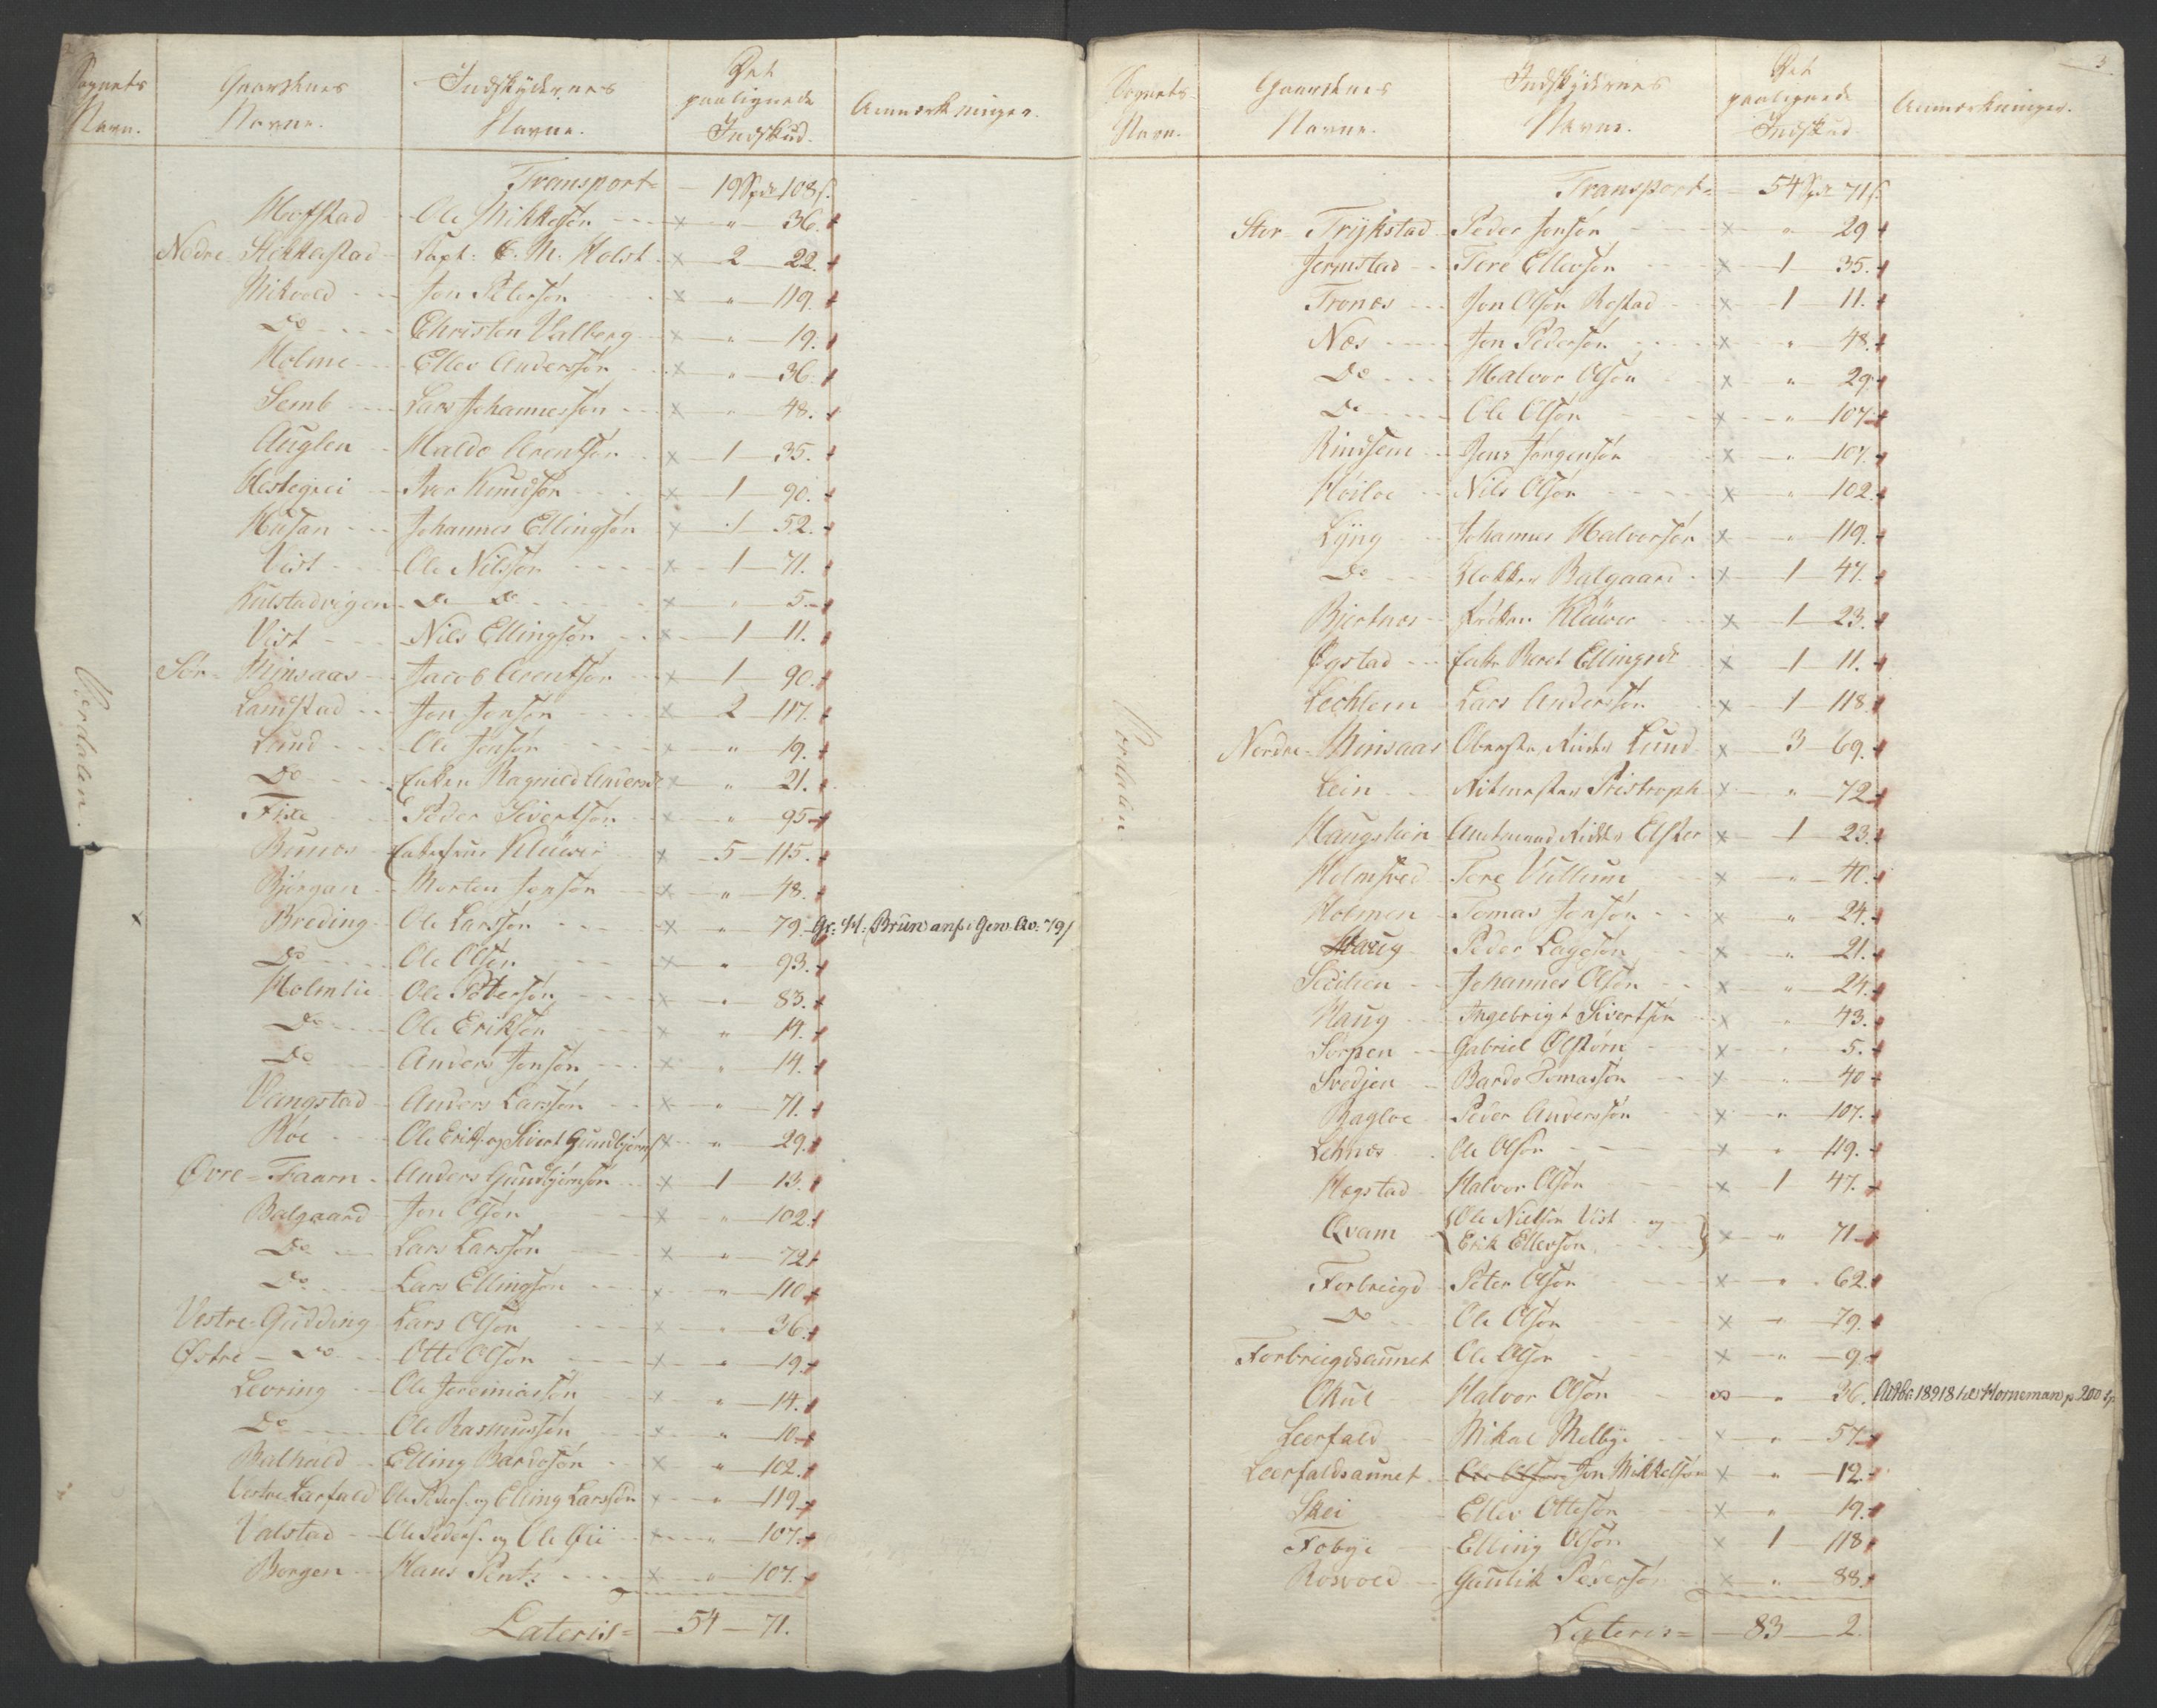 Sognets Navn. Gaardenes Navne. Indskydernes Navne. Det paalignede Indskud. Anmærkninger.
Værdalen.
Transport = 19 Spd 108 s.
Hofstad Ole Mikkelsøn × " 36.
Nedre Stikkelstad Capt: E. M. Holst × 2 22.
Mikvold Jon Petersøn × " 119.
Do Christen Valberg × " 19.
Holme Ellev Anderssøn × " 36.
Semb Lars Johannessøn × " 48.
Auglen Haldo Arentsøn × 1 35.
Hestegrei Iver Knudsøn × 1 90.
Husan Johannes Ellingsøn × 1 52.
Vist Ole Nilssøn × 1 71.
Kulstadvigen Do Do × " 5.
Vist Nils Ellingsøn × 1 11.
Sør- Minsaas Jacob Arentsøn × 1 90.
Landstad Jon Jonsøn × 2 117.
Lund Ole Jonsøn × " 19.
Do Enken Ragnild Andersd × " 21.
Fixe Peder Sivertsøn × " 95
Bunes Enkefrue Klüwer × 5 115.
Bjørgan Morten Jonsøn × " 48.
Breding Ole Larssøn × " 79. Gr: H: Brun anf: i Gen. Av: 79/
Do Ole Olsøn × " 93.
Holmlie Ole Petersøn × " 83.
Do Ole Eriksøn × " 14.
Do Anders Jonsøn × " 14.
Vangstad Anders Larssøn × " 71.
Røe Ole Eriks. og Sivert Gundbjørns × " 29.
Øvre = Faarn Anders Gundbjørnsøn × 1 13.
Balgaard Jon Olsøn × " 102.
Do Lars Larssøn × " 72
Do Lars Ellingsøn × " 110
Vestre-Gudding Lars Olsøn × " 36.
Østre - Do Otte Olsøn × " 19
Levring Ole Jeremiassøn × " 14.
Do Ole Rasmussøn × " 10.
Balhald Elling Bardosøn × " 102.
Vestre Lærfald Ole Peders. og Elling Larssøn × " 119.
Valstad Ole Peders. og Ole × " 107.
Borgen Hans Pentz × " 107.
Lateris = 54 71.
3.
Sognets Navn. Gaardenes Navne. Indskydernes Navne. Det paalignede Indskud. Anmærkninger.
Værdalen
Transport = 54 Spd 71 s.
Stor- Trykstad Peder Jonsøn × " 29
Jermstad Tore Ellevsøn × 1 35.
Trones Jon Olsøn Rostad × 1 11.
Næs Jon Pedersøn × " 48.
Do Halvor Olsøn × " 29
Do Ole Olsøn × " 107
Rindsem Jens Jørgensøn × " 107.
Høiloe Nils Olsøn × " 102.
Lyng Johannes Halvorsøn × " 119.
Do Klokker Balgaard × 1 47.
Bjertnes Frøken Klüwer × 1 23.
Øgstad Enke Beret Ellingsdr × 1 11.
Lechlem Lars Anderssøn × 1 118.
Nordre- Minsaas Oberste, Ridder Lund × 3 69.
Lein Ritmester Pristroph × " 72
Haugskin Amtmand, Ridder Elster × 1 23.
Holmsved Tore Vullum × " 40.
Holmen Tomas Jonsøn × " 24.
Haug Peder Lagesøn × " 21.
Scilien Johannes Olsøn × " 24.
Haug Ingebrigt Sivertsøn × " 43.
Sørpen Gabriel × " 5.
Svedjen Bardo Tomassøn × " 40
Bagloe Peder Anderssøn × " 107.
Leknes Ole Olsøn × " 119.
Hegstad Halvor Olsøn × 1 47.
Qvam { Ole Nielsøn Vist og
Erik Ellevsøn } × " 71
Forbregd Peter Olsøn × " 62.
Do Ole Olsøn × " 79.
Forbregdsaunet Ole Olsøn × " 9
Okul Halvor Olsøn " 36. 18918 hos Horneman p. 200 Sp
Leerfald Mikal Melbye × " 57
Leerfaldsaunet Ole Olsøn Jon Mikkelsøn × " 12.
Skei Ellev Ottesøn × " 19.
Fobye Elling Olsøn × 1 118
Rosvold Gaulik Pedersøn × " 88.
Lateris = 83 2.